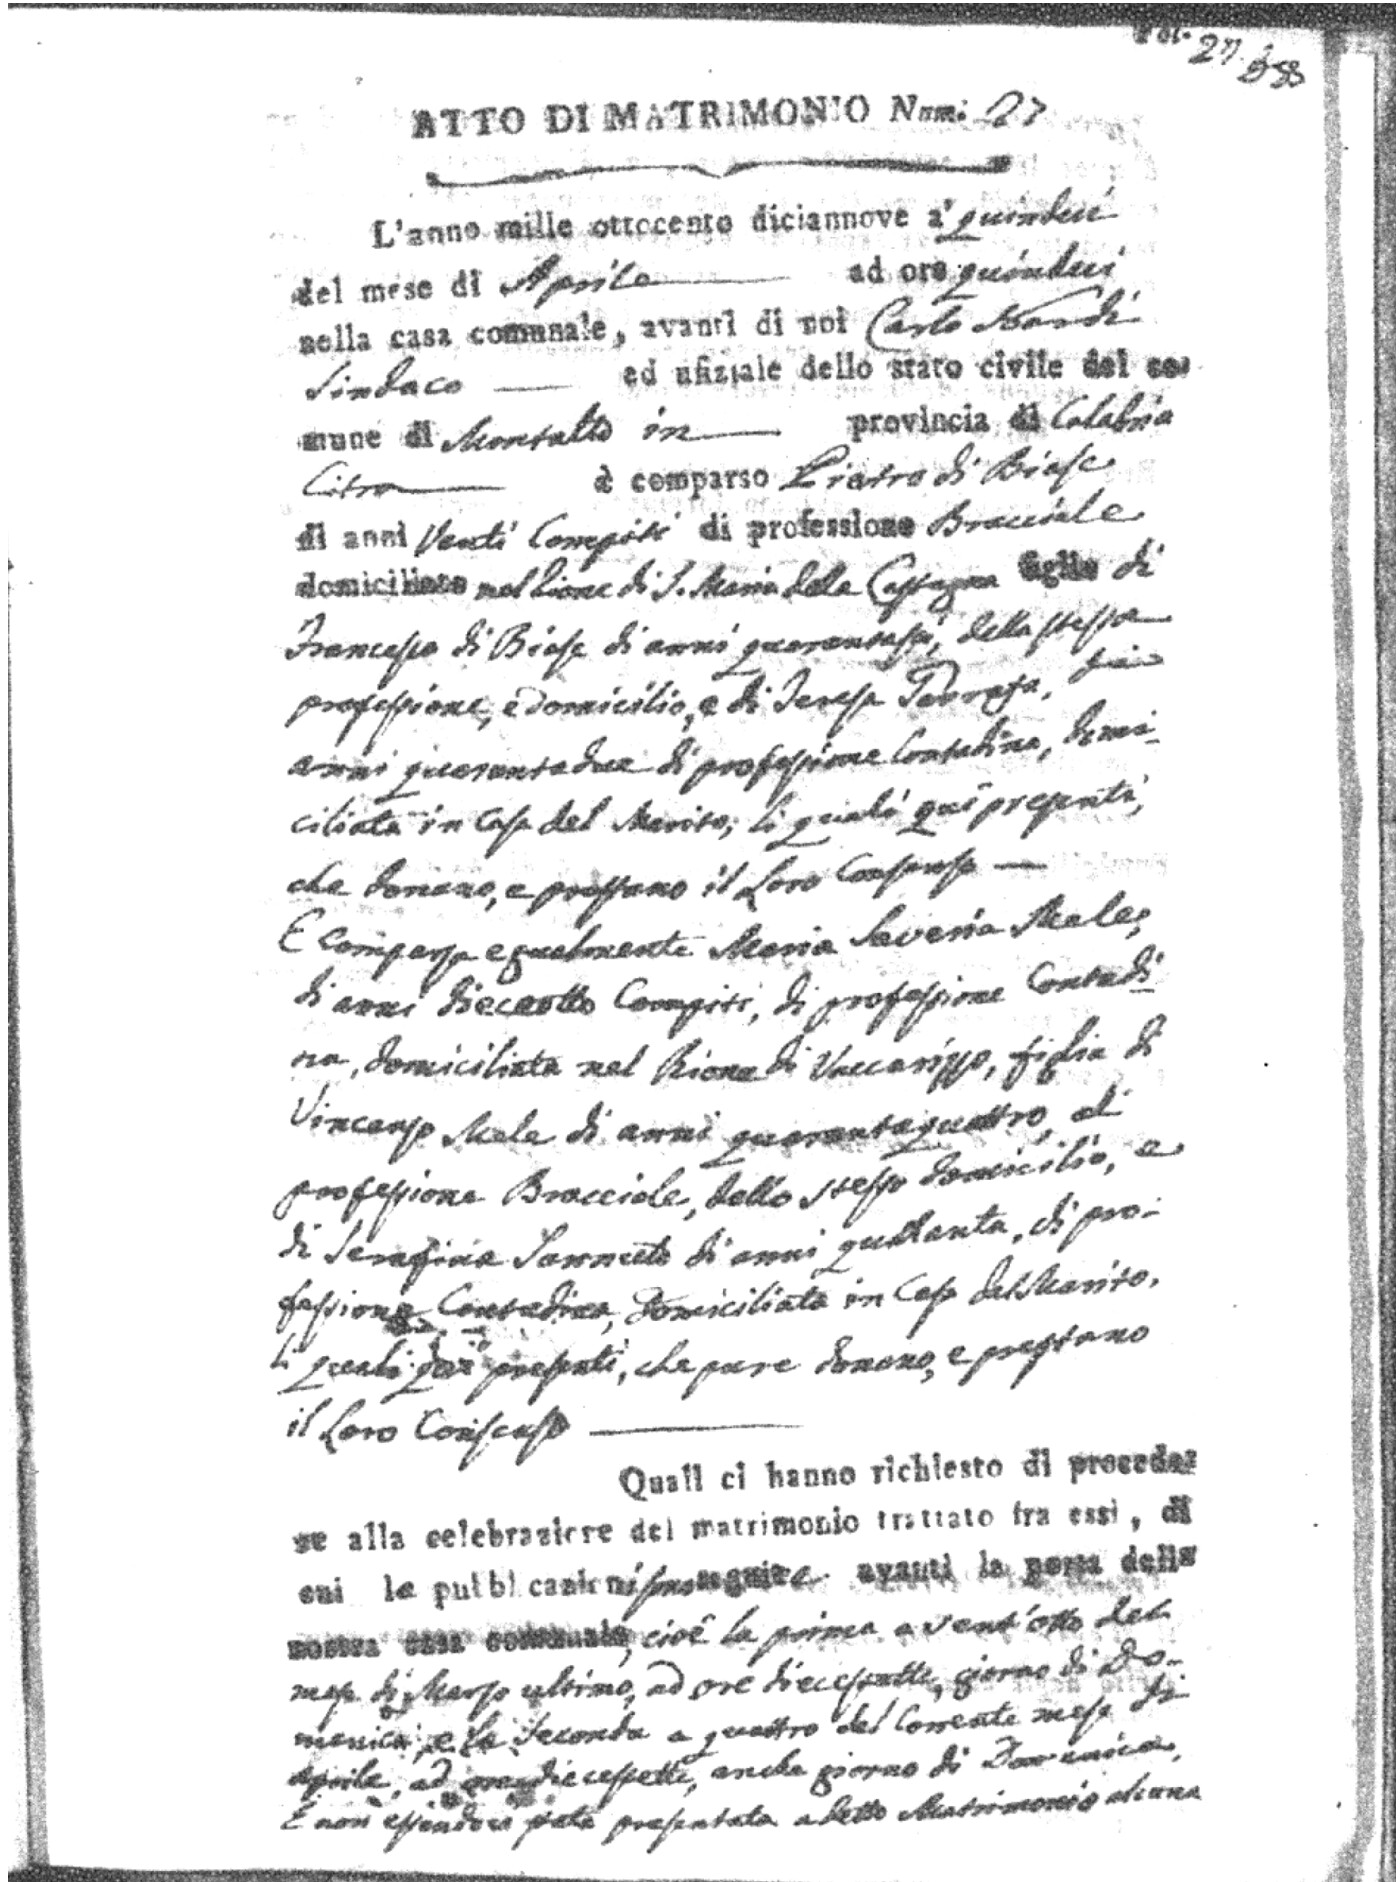 27.
ATTO DI MATRIMONIO Num: 27
L'anno mille ottocento diciannove a' quindeci
del mese di Aprile ad ore quindeci
nella casa comunale, avanti di noi Carlo Nardi
Sindaco ed ufiziale dello stato civile del co-
mune di Montalto in provincia di Calabria
Citra è comparso Pietro di Biase
di anni Venti Compiti di professione Bracciale
domiciliato nel Rione di S. Maria della Castagna figlio di
Francesco di Biase di anni quarantasei, della stessa
professione, e domicilio, e di Teresa di
anni quarantadue di professione Contadina, domi-
ciliata in Casa del Marito, li quali qui presenti,
che donano, e prestano il Loro Consenso
E comparsa egualmente Maria Saveria Mele,
di anni dieceotto Compiti, di professione Contadi-
na, domiciliata nel Rione di Vaccarizzo, figlia di
Vincenzo Mele di anni quarantaquattro, di
professione Bracciale, dello stesso domicilio, e
di Serafina di anni quaranta, di pro-
fessione Contadina, domiciliata in Casa del Marito,
li quali qui presenti, che pure donano, e prestano
il Loro Consenso
Quali ci hanno richiesto di procede-
re alla celebrazione del matrimonio trattato fra essi, di
cui le pubblicazioni avanti la porta della
nostra casa comunale, cioè la prima a vent'otto del
mese di Marzo ultimo, ad ore diecessette, giorno di Do-
menica, e la Seconda a quattro del Corrente mese di
Aprile, ad ore diecessette, anche giorno di Domenica,
E non essendoci stata presentata a detto Matrimonio alcuna